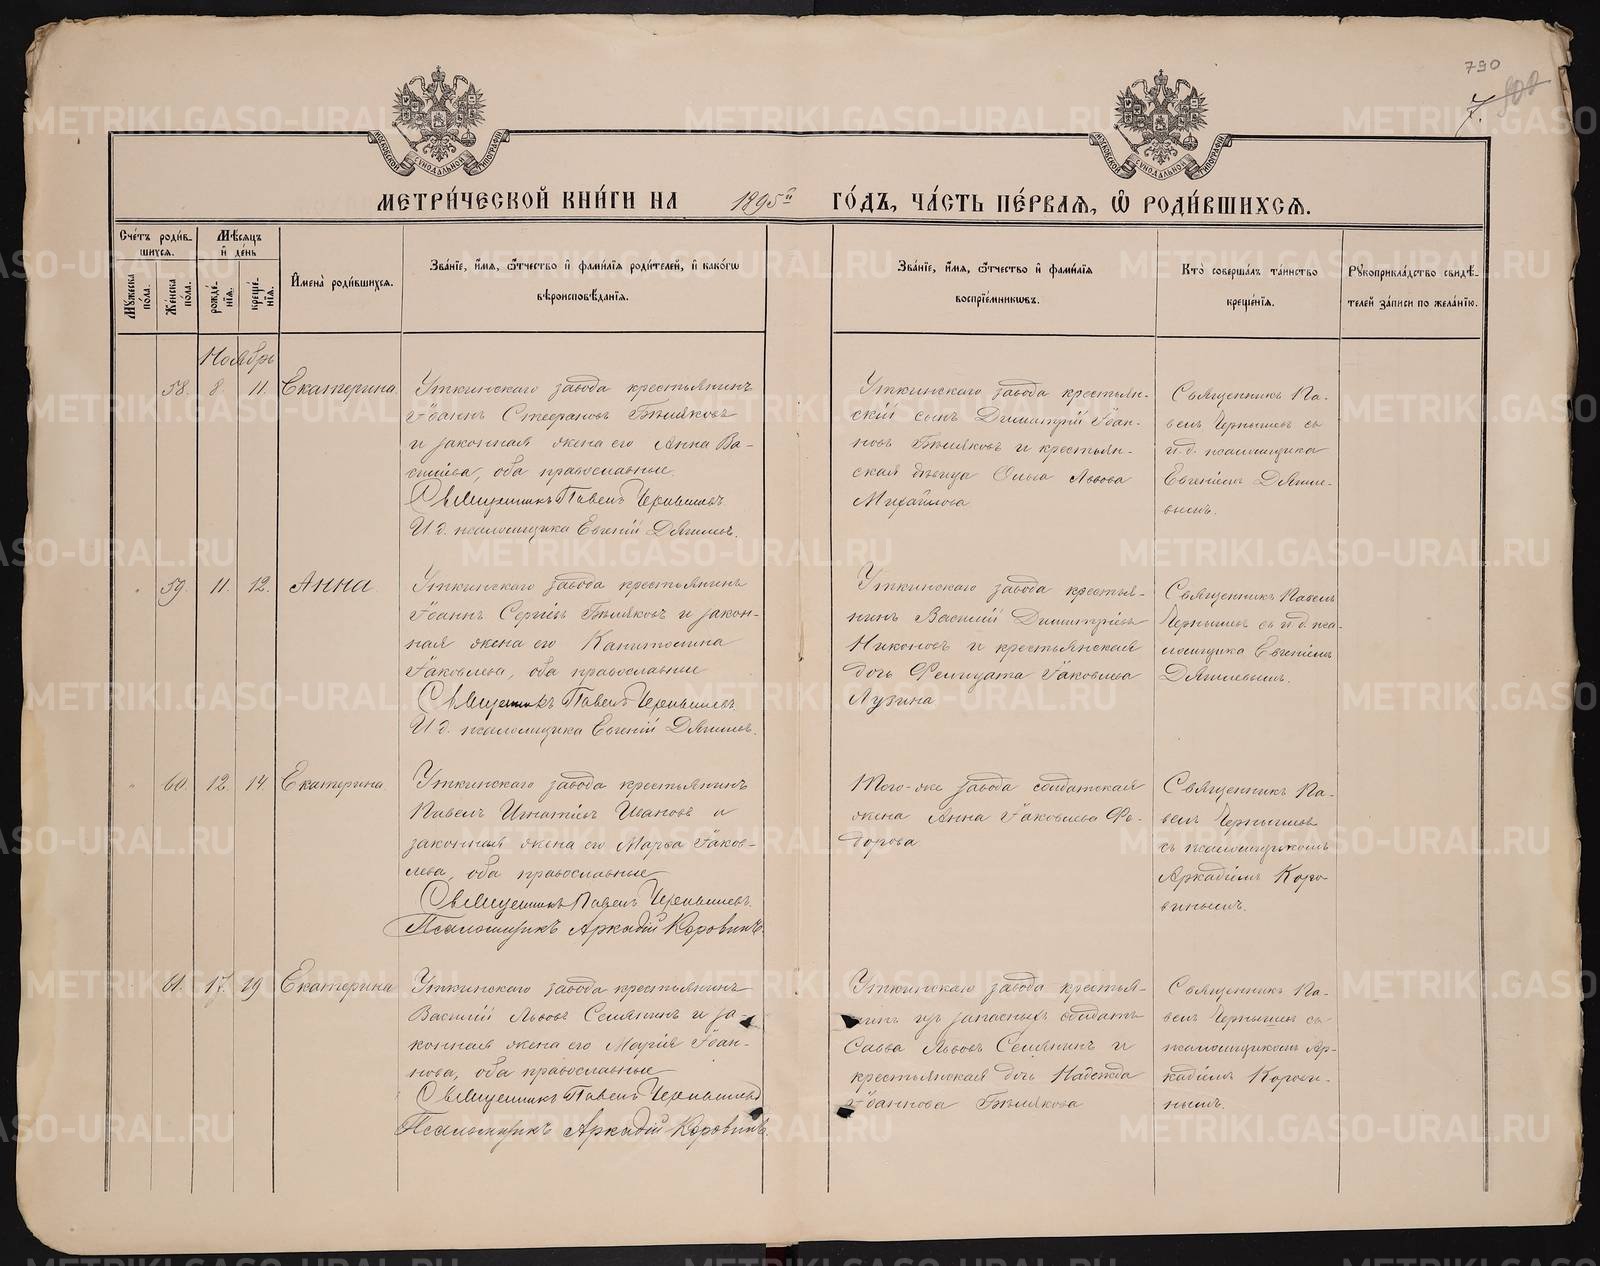 790
7. 800
МОСКОВСКОЙ СѴНОДАЛЬНОЙ ТИПОГРАФІИ
МОСКОВСКОЙ СѴНОДАЛЬНОЙ ТИПОГРАФІИ
МЕТРИ́ЧЕСКОЙ КНИ́ГИ НА 1895й ГО́ДЪ, ЧА́СТЬ ПЕ́РВАЯ, Ѡ҆ РОДИ́ВШИХСЯ.
Сче́тъ роди́в-
шихся.
Мꙋ́жеска по́ла.
Же́нска по́ла.
Мѣ́сяцъ
и҆ де́нь
рожде́-
нїѧ.
креще́-
нїѧ.
И҆мена̀ роди́вшихся.
Зва́нїе, и҆́мѧ, ѻ҆́тчество и҆ фами́лїѧ роди́телей, и҆ како́гѡ
вѣроисповѣ́данїѧ.
Зва́нїе, и҆́мѧ, ѻ҆́тчество и҆ фами́лїѧ
воспрїе́мникѡвъ.
Кто̀ соверша́лъ та́инство
креще́нїѧ.
Рꙋкоприкла́дство свидѣ́-
телей за́писи по жела́нїю.
Ноябрь
58. 8. 11. Екатерина.
Уткинскаго завода крестьянинъ
Іоаннъ Стефановъ Бѣляковъ
и законная жена его Анна Ва-
сильева, оба православные.
Священникъ Павелъ Чернышевъ.
И. д. псаломщика Евгеній Дягилевъ.
Уткинскаго завода крестьян-
скій сынъ Димитрій Іоан-
новъ Бѣляковъ и крестьян-
ская дѣвица Ольга Львова
Михайлова
Священникъ Па-
велъ Чернышевъ съ
и. д. псаломщика
Евгеніемъ Дягиле-
вымъ.
59. 11. 12. Анна
Уткинскаго завода крестьянинъ
Іоаннъ Сергіевъ Бѣляковъ и закон-
ная жена его Капитолина
Іаковлева, оба православные
Священникъ Павелъ Чернышевъ
И. д. псаломщика Евгеній Дягилевъ.
Уткинскаго завода крестья-
нинъ Василій Димитріевъ
Никоновъ и крестьянская
дочь Фелицата Іаковлева
Лузина
Священникъ Павелъ
Чернышевъ съ и. д. пса-
ломщика Евгеніемъ
Дягилевымъ.
60. 12. 14. Екатерина.
Уткинскаго завода крестьянинъ
Павелъ Игнатіевъ Ивановъ и
законная жена его Марья Іаков-
лева, оба православные
Священникъ Павелъ Чернышевъ.
Псаломщикъ Аркадій Коровинъ.
Того-же завода солдатская
жена Анна Іаковлева Фе-
дорова
Священникъ Па-
велъ Чернышевъ
съ псаломщикомъ
Аркадіемъ Коро-
винымъ.
61. 17. 19 Екатерина
Уткинскаго завода крестьянинъ
Василій Львовъ Селянинъ и за-
конная жена его Марія Іоан-
нова, оба православные
Священникъ Павелъ Чернышевъ
Псаломщикъ Аркадій Коровинъ.
Уткинскаго завода крестья-
нинъ изъ запасныхъ солдатъ
Савва Львовъ Селянинъ и
крестьянская дочь Надежда
Іоаннова Бѣлякова
Священникъ Па-
велъ Чернышевъ съ
псаломщикомъ Ар-
кадіемъ Корови-
нымъ.
METRIKI.GASO-URAL.RU